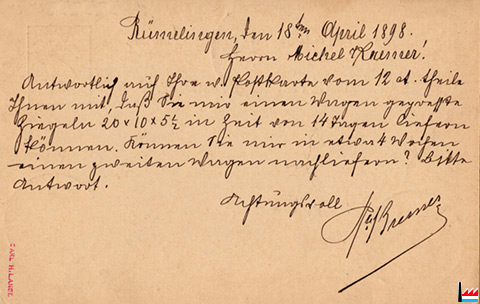 Rümelingen, den 18ten April 1898.
Herrn Nickel Kaiser!
Antwortlich auf Ihre w. Postkarte vom 12 ct. theile
Ihnen mit, daß Sie mir einen Wagen gepresste
Ziegeln 20 x 10 x 5½ in Zeit von 14 Tagen liefern
können. Können Sie mir in etwa 4 Wochen
einen zweiten Wagen nachliefern? Bitte
Antwort.
Achtungsvoll
CARL H. LANGE